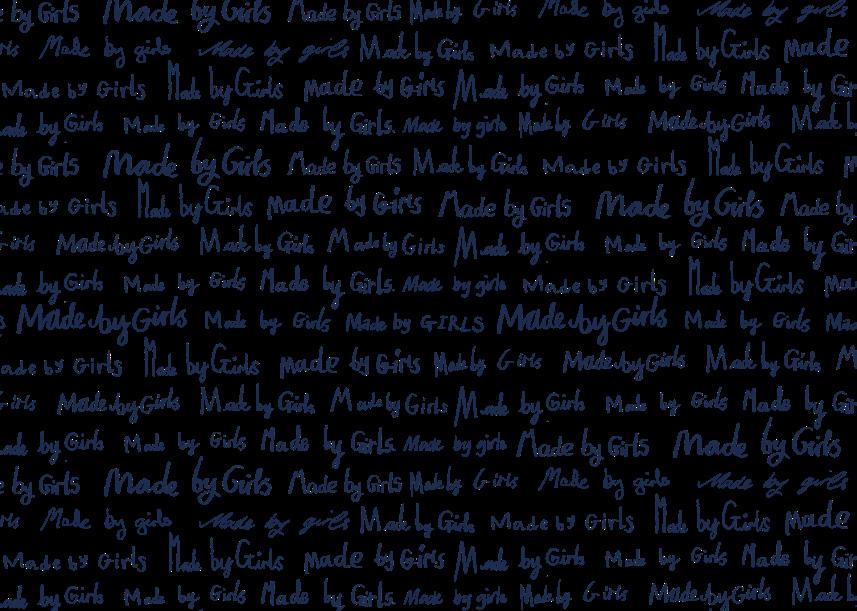 by Girls Made by Girls Made by Girls Made by Girls Made by girls Made by girls
Made by girls Made by girls Made by Girls Made by Girls Made by Girls Made
Made by Girls Made by Girls Made by Girls Made by Girls Made by Girls Made by Girls
Made by Girls Made by Girls Made by Girls. Made by girls Made by Girls Made by Girls Made by
by Girls Made by Girls Made by Girls Made by Girls Made by Girls Made by Girls
Made by Girls Made by Girls Made by Girls Made by Girls Made by Girls Made by
Girls Made by Girls Made by Girls Made by Girls Made by Girls Made by Girls Made by
Made by Girls Made by Girls Made by Girls. Made by girls Made by Girls Made by Girls
Made by Girls Made by Girls Made by GIRLS Made by Girls Made by Girls
Made by Girls Made by Girls Made by Girls Made by Girls Made by Girls Made by Girls
Girls Made by Girls Made by Girls Made by Girls Made by Girls Made by Girls Made by
Made by Girls Made by Girls Made by Girls. Made by girls Made by Girls Made by Girls
by Girls Made by Girls Made by Girls Made by Girls Made by girls Made by girls
Made by girls Made by girls Made by Girls Made by Girls Made by Girls Made
Made by Girls Made by Girls Made by Girls Made by Girls Made by Girls Made by Girls
Made by Girls Made by Girls Made by Girls. Made by girls Made by Girls Made by Girls Made by